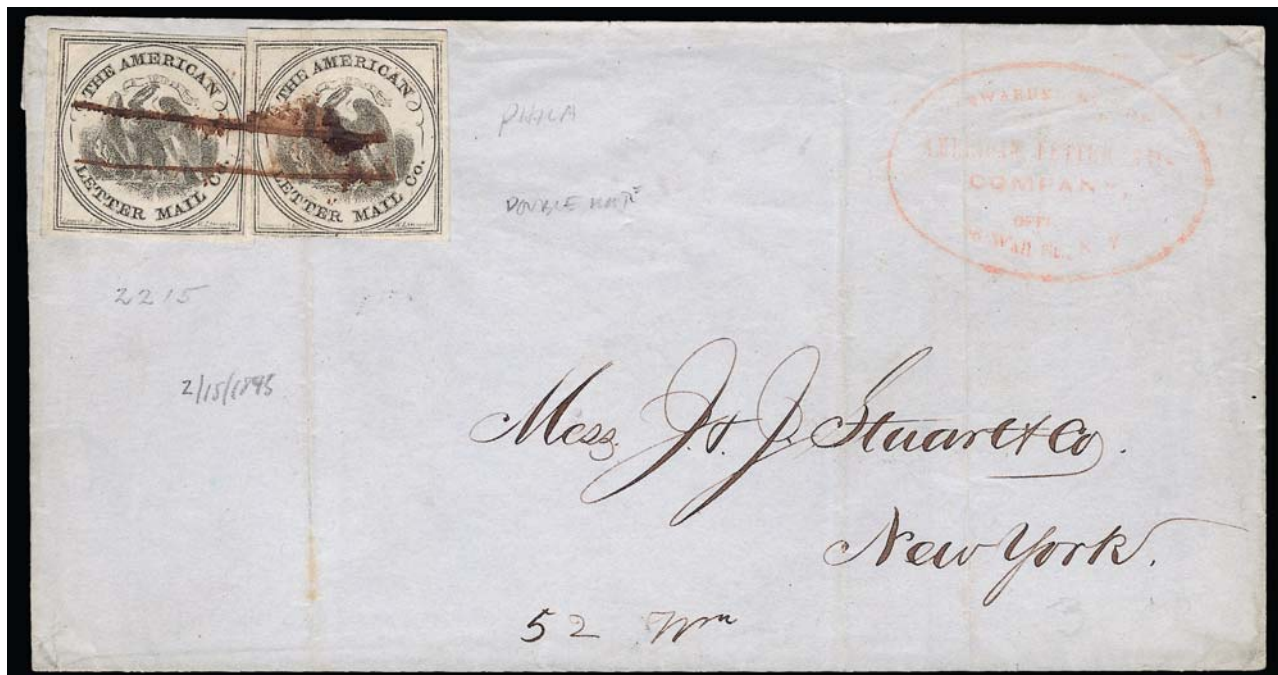 THE AMERICAN
LETTER MAIL Co.
THE AMERICAN
LETTER MAIL Co.
PHILA
DOUBLE RATE
AMERICAN LETTER
COMPANY,
Wall St., N. Y
2215
Mess. J. & J. Stuart & Co.
New York.
52